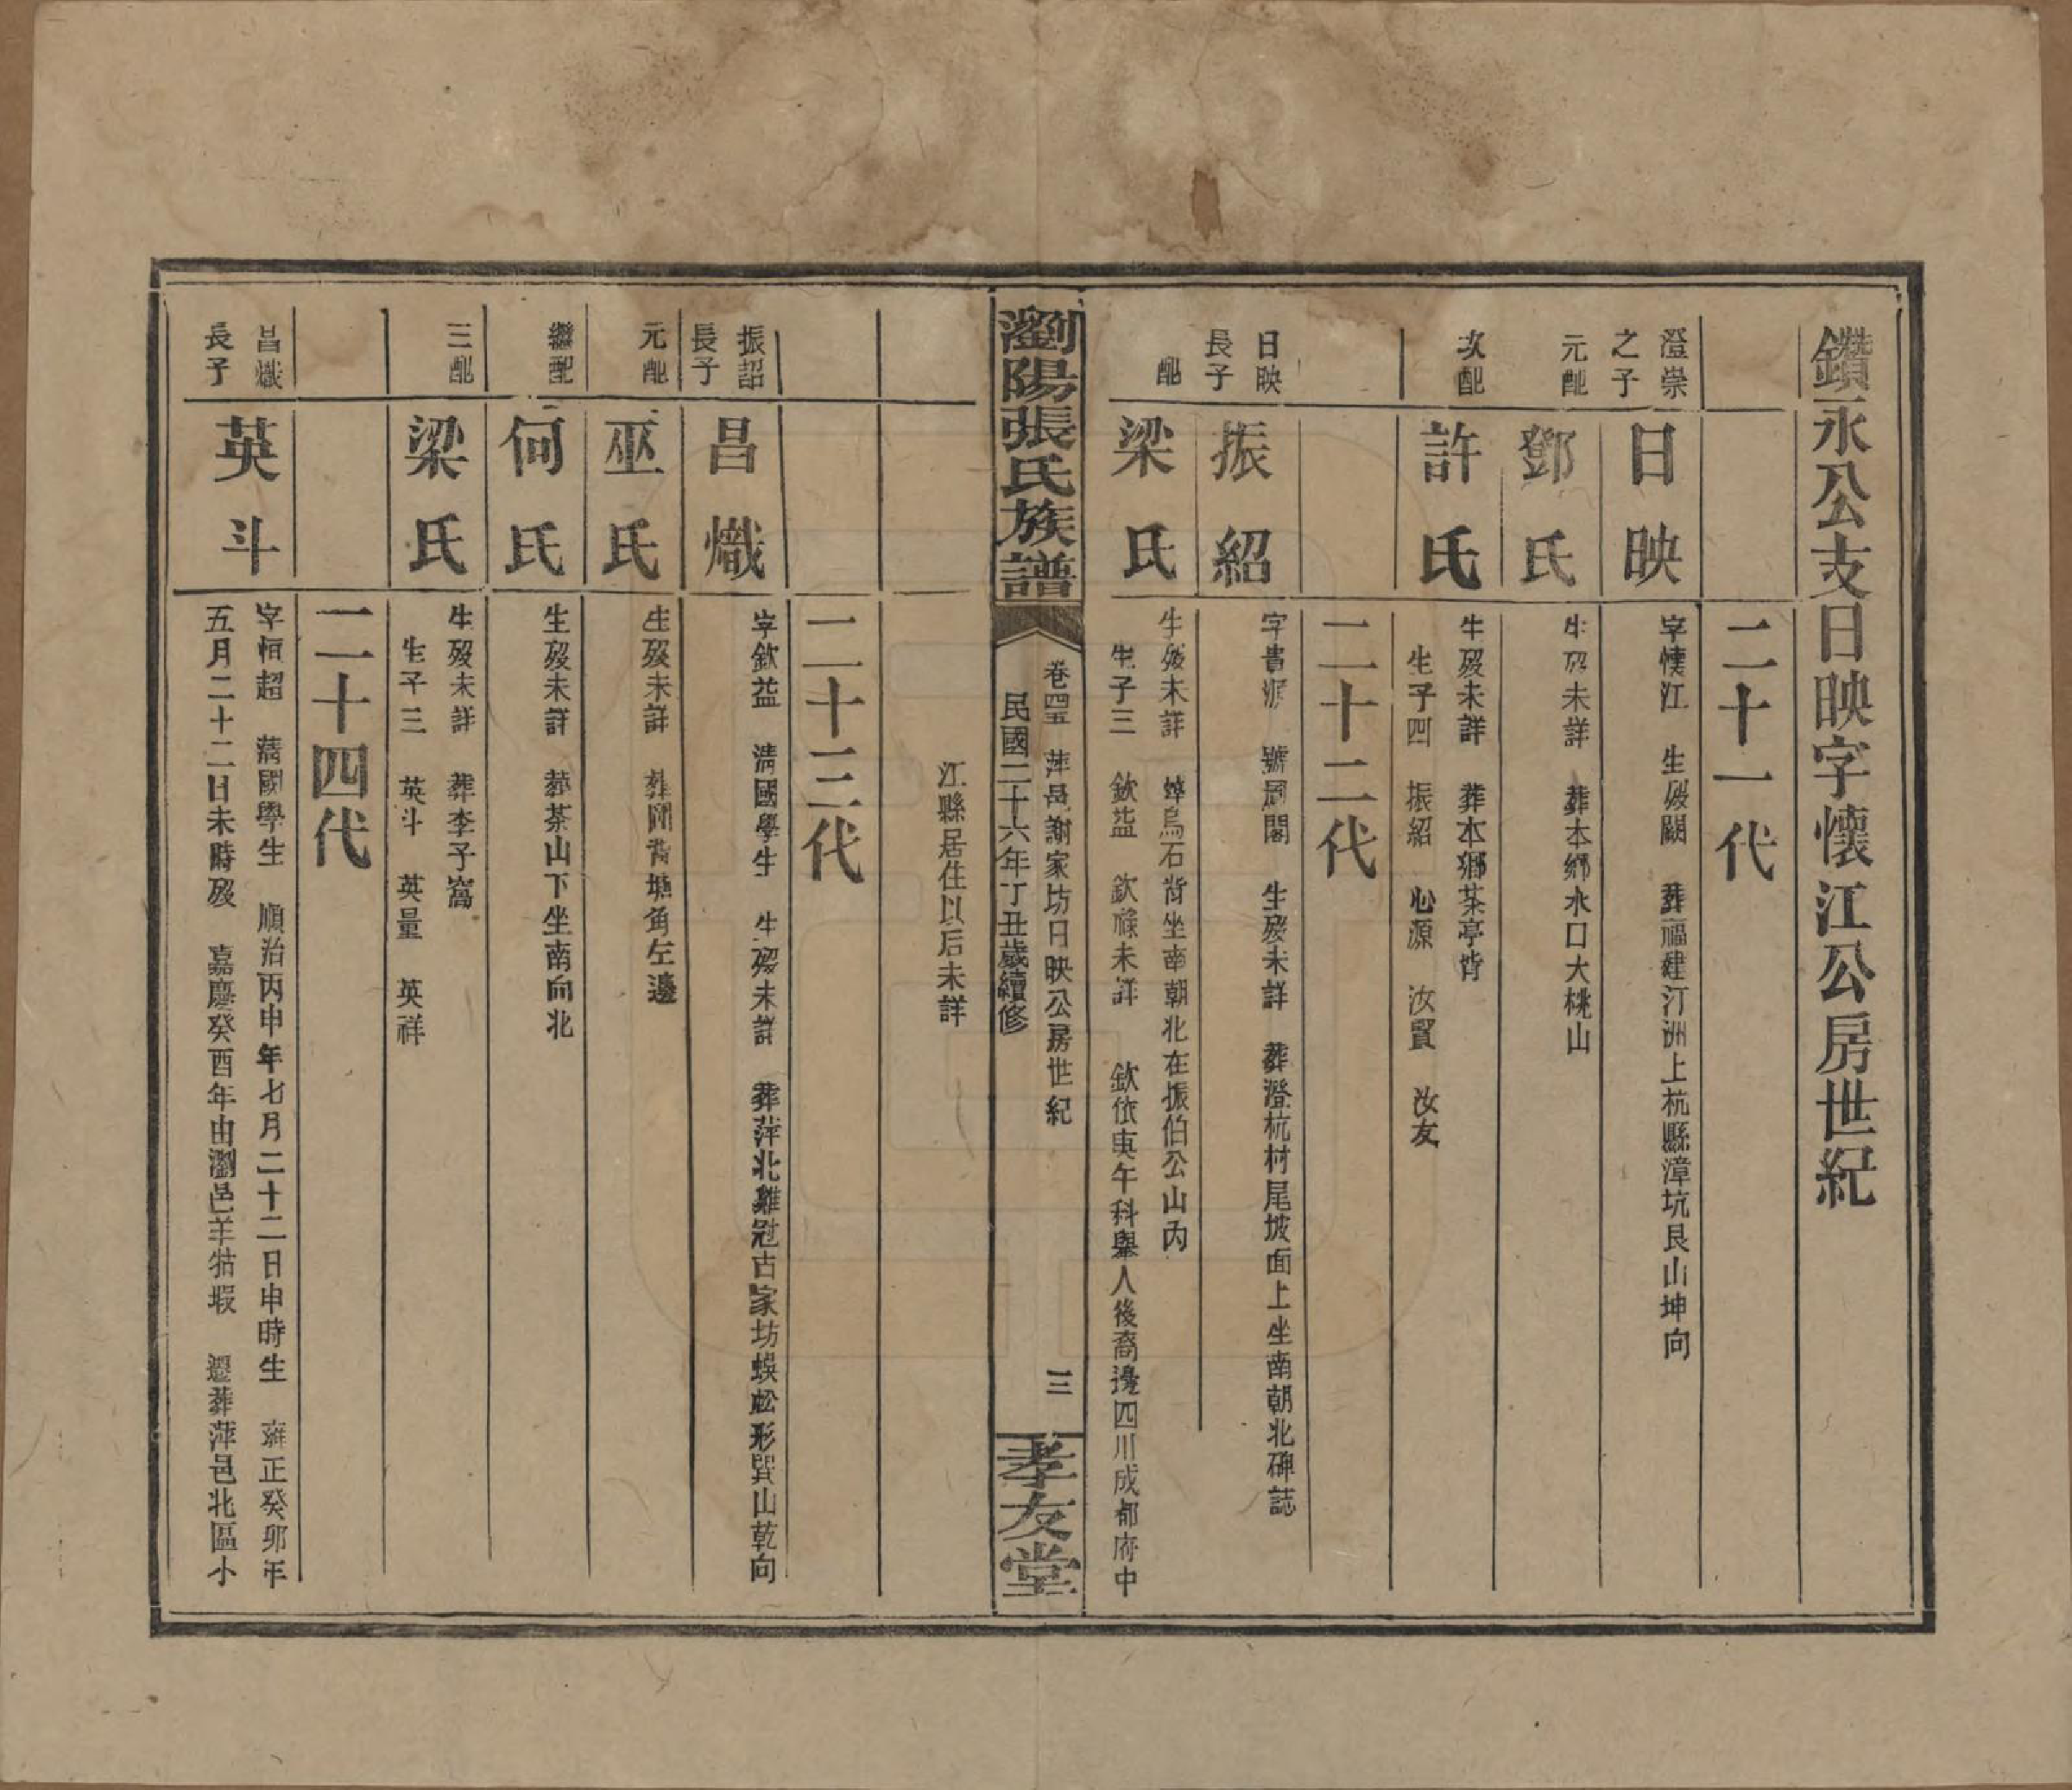 鑽永公支日映字懷江公房世紀
二十一代
澄崇
之子
日映
字懷江　生歿闕　葬福建汀洲上杭縣漳坑艮山坤向
元配
鄧氏
生歿未詳　葬本鄉水口大桃山
次配
許氏
生歿未詳　葬本鄉茶亭背
生子四　振紹　心源　汝賢　汝友
二十二代
日映
長子
振紹
字貴源　號周閣　生歿未詳　葬澄杭村尾坡面上坐南朝北碑誌
配
梁氏
生歿未詳　葬烏石背坐南朝北在振伯公山內
生子三　欽益　欽祿未詳　欽依庚午科舉人後裔邊四川成都府中
瀏陽張氏族譜
卷四五　萍邑謝家坊日映公房世紀
民國二十六年丁丑歲續修
三
孝友堂
江縣居住以后未詳
二十三代
振詔
長子
昌熾
字欽益　清國學生　生歿未詳　葬萍北雞冠古家坊蜈蚣形巽山乾向
元配
巫氏
生歿未詳　葬園背塘角左邊
繼配
何氏
生歿未詳　葬茶山下坐南向北
三配
梁氏
生歿未詳　葬李子窩
生子三　英斗　英量　英祥
二十四代
昌熾
長子
英斗
字恒超　清國學生　順治丙申年七月二十二日申時生　雍正癸卯年
五月二十二日未時歿　嘉慶癸酉年由瀏邑羊牯塅　遷葬萍邑北區小